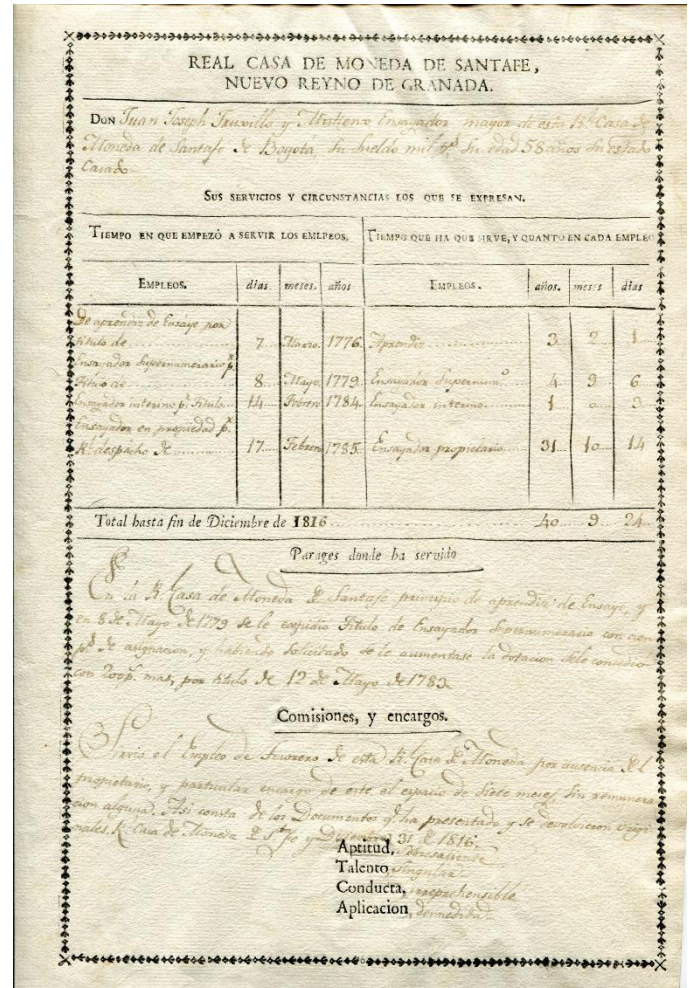 REAL CASA DE MONEDA DE SANTAFE,
NUEVO REYNO DE GRANADA.
DON Juan Joseph Truxillo y Ensayador mayor de esta Rl. Casa de
Moneda de Santafe de Bogota, su sueldo mil ps. su edad 58 años su estado
Casado
SUS SERVICIOS Y CIRCUNSTANCIAS LOS QUE SE EXPRESAN.
TIEMPO EN QUE EMPEZÓ A SERVIR LOS EMLPEOS. TIEMPO QUE HA QUE SIRVE, Y QUANTO EN CADA EMPLEO
EMPLEOS. dias meses. años EMPLEOS. años. meses dias
De aprendiz de Ensaye por
titulo de 7 Marzo. 1776 Aprendiz 3 2 1
Ensayador Supernumerario p.
Titulo de 8 Mayo 1779 Ensayador Supernumo. 4 9 6
Ensayador interino p. Titulo 14 Febrero 1784 Ensayador interino 1 0 3
Ensayador en propiedad p.
Rl. despacho de 17 Febrero 1785 Ensayador propietario 31 10 14
Total hasta fin de Diciembre de 1816 40 9 24
Parages donde ha servido
En la Rl. Casa de Moneda de Santafe principio de aprendiz de Ensaye, y
en 8 de Mayo de 1779 se le expidio Titulo de Ensayador Supernumerario con cien
ps. de asignacion, y habiendo solicitado se le aumentase la dotacion se le concedio
con 200 p. mas, por titulo de 12 de Mayo de 1783.
Comisiones, y encargos.
Sirvio el Empleo de Tesorero de esta Rl. Casa de Moneda por ausencia del
propietario, y particular encargo de este, el espacio de siete meses, sin remunera
cion alguna. Asi consta de los Documentos q. ha presentado y se devolvieron origi
nales. Rl. Casa de Moneda de Sta. Fe y Diciembre 31 de 1816.
Aptitud, Sobresaliente
Talento, Singular
Conducta, irreprehensible
Aplicacion,